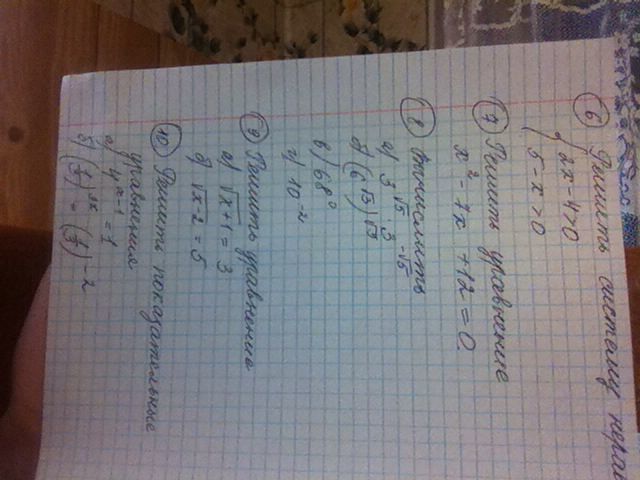 6 Решить систему нерав
{ 2x - 4 > 0
5 - x > 0
7 Решить уравнение
x² - 7x + 12 = 0
8 Вычислить
а) 3^√5 · 3^-√5
б) (6^√3)^√3
в) 68⁰
г) 10⁻²
9 Решить уравнение
а) √x+1 = 3
б) √x-2 = 5
10 Решить показательные
уравнения
а) 4^x-1 = 1